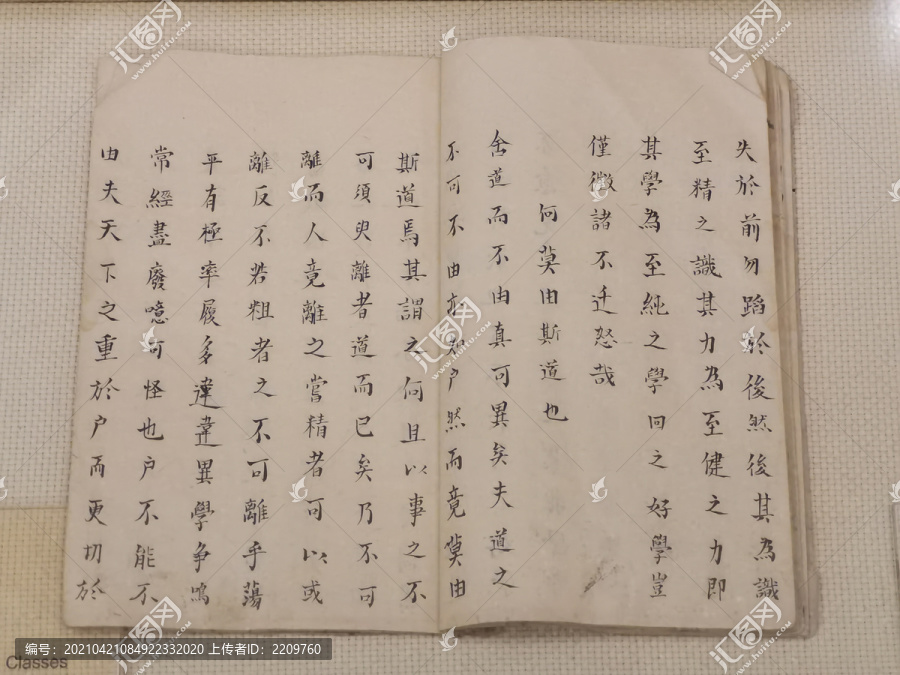 失於前勿蹈於後然後其為識
至精之識其力為至健之力即
其學為至純之學回之好學豈
僅微諸不迁怒哉
何莫由斯道也
舍道而不由真可異矣夫道之
不可不由於户然而竟莫由
斯道焉其謂之何且以事之不
可須臾離者道而已矣乃不可
離而人竟離之當精者可以或
離反不若粗者之不可離乎蕩
平有極率履多違違異學争鳴
常經盡廢噫可怪也户不能不
由夫天下之重於户而更切於
编号：20210421084922332020 上传者ID：2209760
Classes
汇图网
www.huitu.com